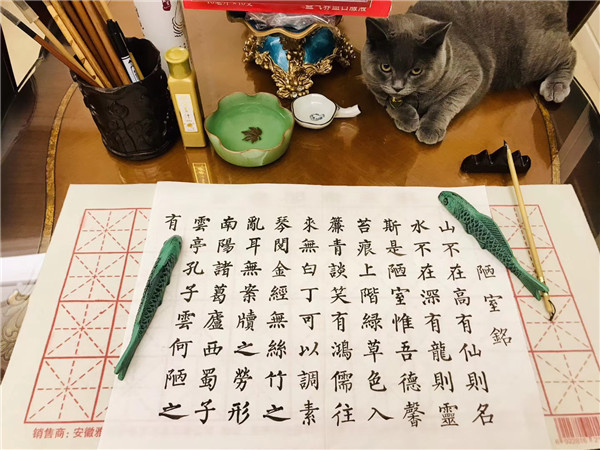 陋室銘
山不在高有仙則名
水不在深有龍則靈
斯是陋室惟吾德馨
苔痕上階綠草色入
簾青談笑有鴻儒往
來無白丁可以調素
琴閱金經無絲竹之
亂耳無案牘之勞形
南陽諸葛廬西蜀子
雲亭孔子雲何陋之
有
销售商：安徽雅